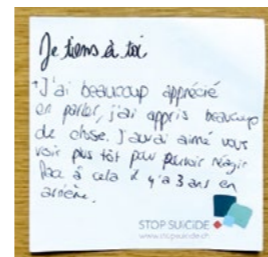 Je tiens à toi
"J'ai beaucoup apprécié
en parler, j'ai appris beaucoup
de chose. J'aurai aimé vous
voir plus tôt pour pouvoir réagir
face à cela il y a 3 ans en
arrière.
STOP SUICIDE
www.stopsuicide.ch